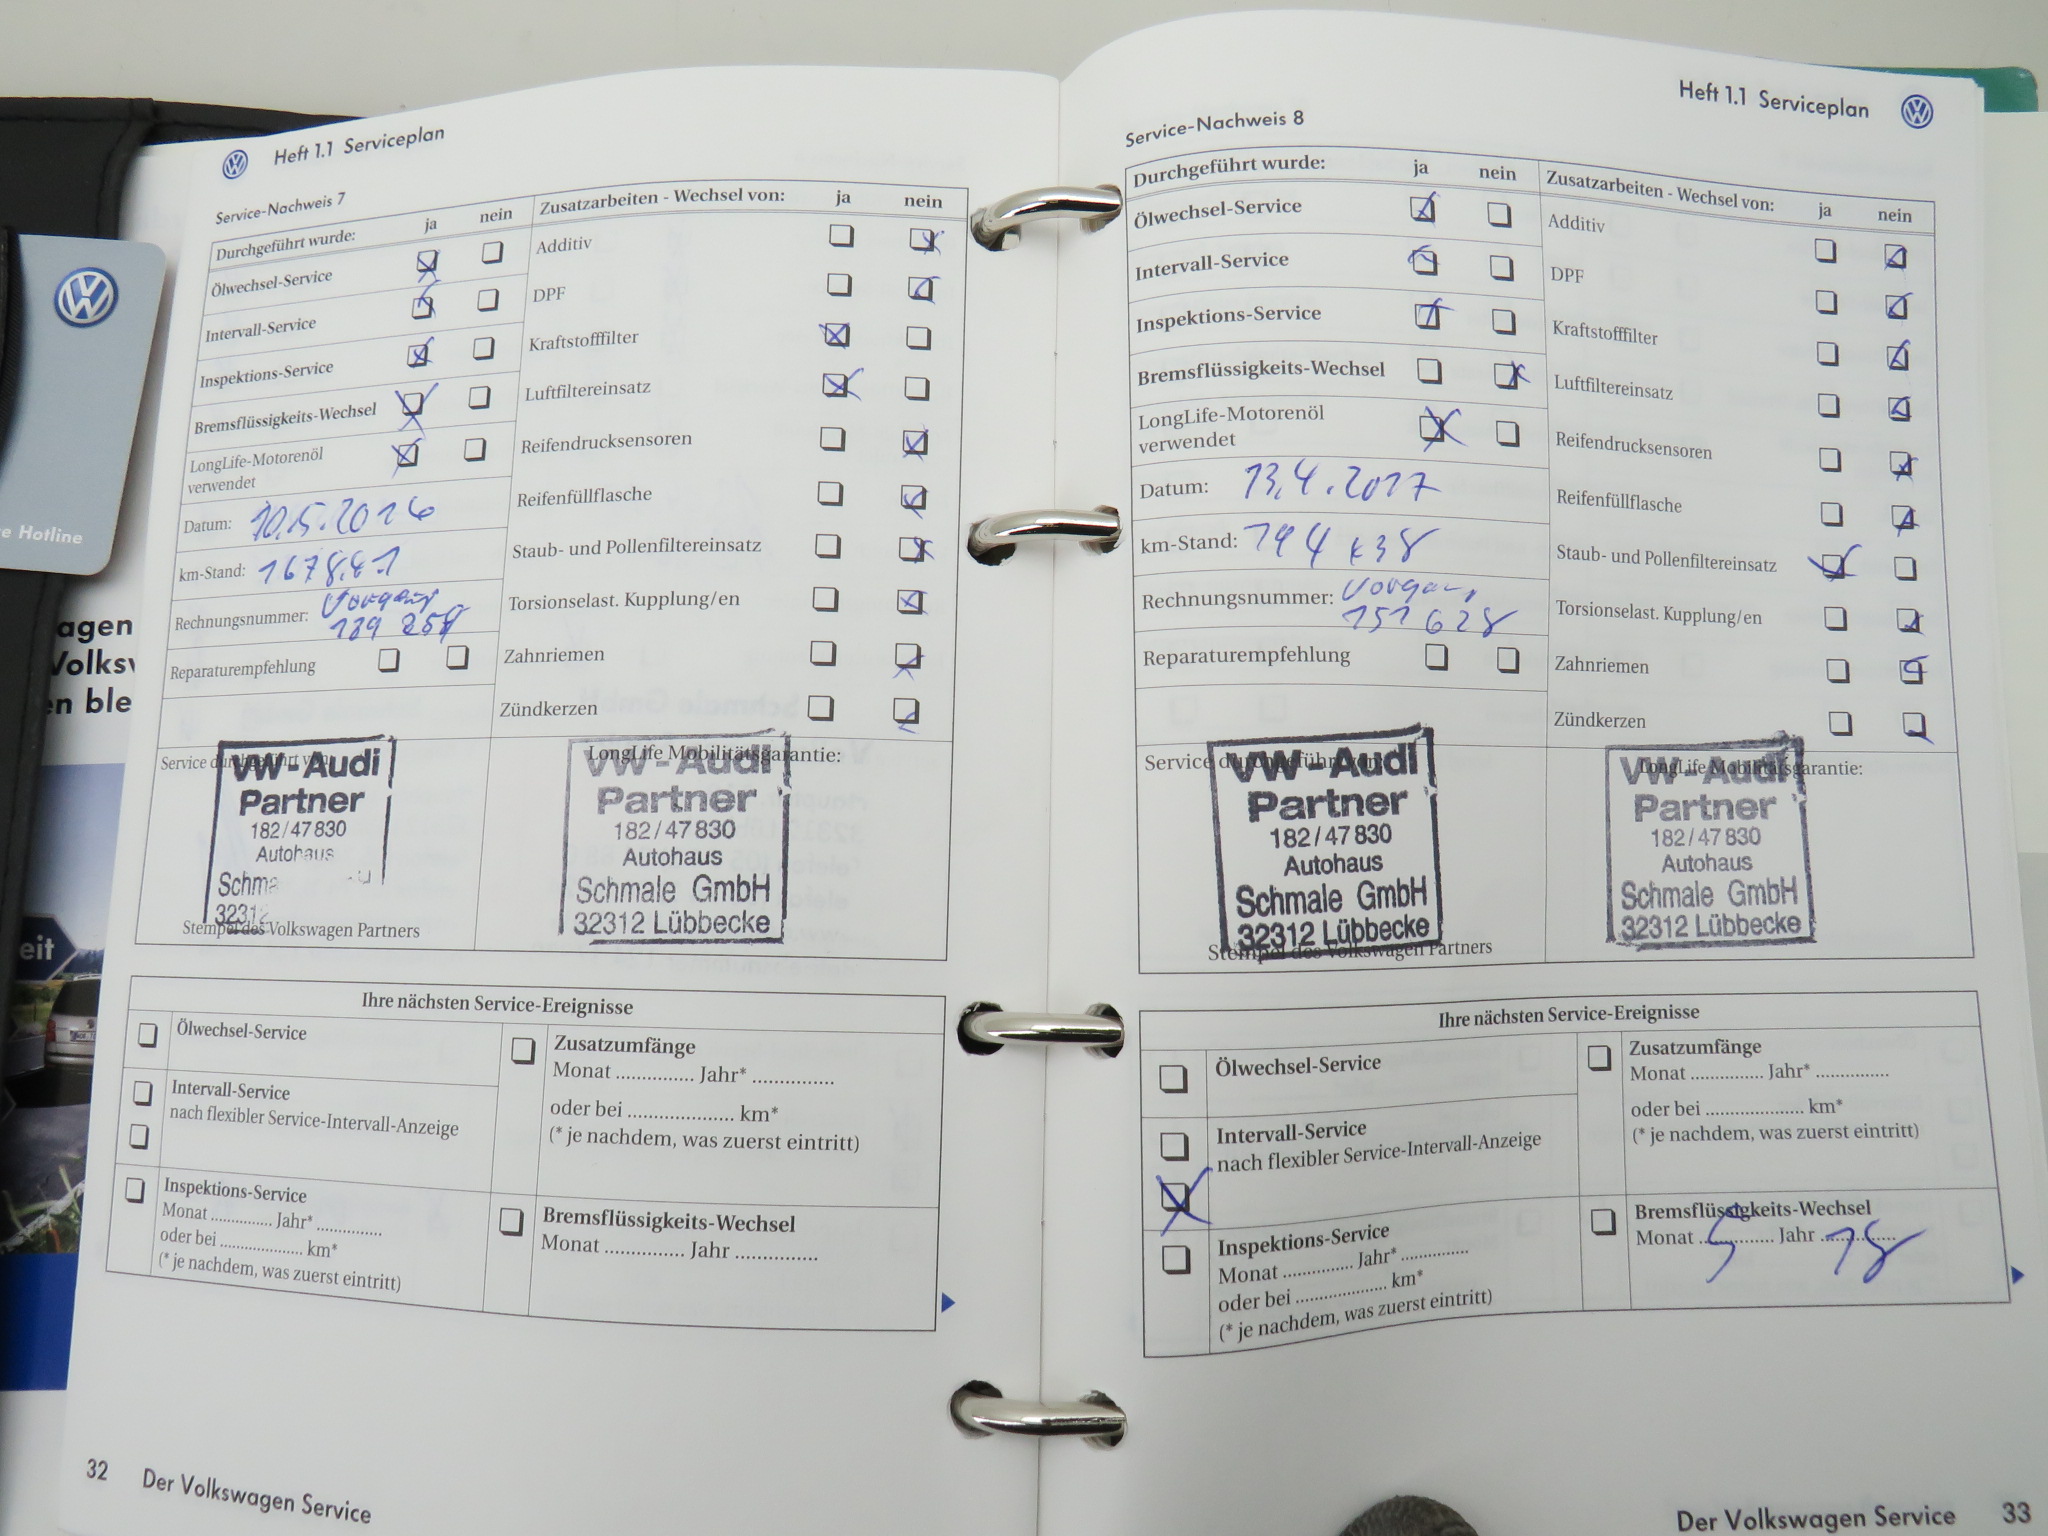 Heft 1.1 Serviceplan
Service-Nachweis 7
Durchgeführt wurde: ja nein
Ölwechsel-Service
Intervall-Service
Inspektions-Service
Bremsflüssigkeits-Wechsel
LongLife-Motorenöl
verwendet
Datum: 10.5.2016
km-Stand:
Rechnungsnummer: Vorgang
Reparaturempfehlung
Zusatzarbeiten - Wechsel von: ja nein
Additiv
DPF
Kraftstofffilter
Luftfiltereinsatz
Reifendrucksensoren
Reifenfüllflasche
Staub- und Pollenfiltereinsatz
Torsionselast. Kupplung/en
Zahnriemen
Zündkerzen
Service durchgeführt von:
VW-Audi
Partner
182/47830
Autohaus
32312
Stempel des Volkswagen Partners
LongLife Mobilitätsgarantie:
VW-Audi
Partner
182/47830
Autohaus
Schmale GmbH
32312 Lübbecke
Ihre nächsten Service-Ereignisse
Ölwechsel-Service
Intervall-Service
nach flexibler Service-Intervall-Anzeige
Inspektions-Service
Monat ............... Jahr* ................
oder bei .................... km*
(* je nachdem, was zuerst eintritt)
Zusatzumfänge
Monat .............. Jahr* ...............
oder bei .................... km*
(* je nachdem, was zuerst eintritt)
Bremsflüssigkeits-Wechsel
Monat .............. Jahr ...............
32 Der Volkswagen Service
Heft 1.1 Serviceplan
Service-Nachweis 8
Durchgeführt wurde: ja nein
Ölwechsel-Service
Intervall-Service
Inspektions-Service
Bremsflüssigkeits-Wechsel
LongLife-Motorenöl
verwendet
Datum: 13.4.2017
km-Stand:
Rechnungsnummer: Vorgang
151 628
Reparaturempfehlung
Zusatzarbeiten - Wechsel von: ja nein
Additiv
DPF
Kraftstofffilter
Luftfiltereinsatz
Reifendrucksensoren
Reifenfüllflasche
Staub- und Pollenfiltereinsatz
Torsionselast. Kupplung/en
Zahnriemen
Zündkerzen
Service durchgeführt von:
VW-Audi
Partner
182/47830
Autohaus
Schmale GmbH
32312 Lübbecke
Stempel des Volkswagen Partners
LongLife Mobilitätsgarantie:
VW-Audi
Partner
182/47830
Autohaus
Schmale GmbH
32312 Lübbecke
Ihre nächsten Service-Ereignisse
Ölwechsel-Service
Intervall-Service
nach flexibler Service-Intervall-Anzeige
Inspektions-Service
Monat ............... Jahr* ...............
oder bei .................... km*
(* je nachdem, was zuerst eintritt)
Zusatzumfänge
Monat ............... Jahr* ...............
oder bei .................... km*
(* je nachdem, was zuerst eintritt)
Bremsflüssigkeits-Wechsel
Monat 5 Jahr 18
Der Volkswagen Service 33
Hotline
eit